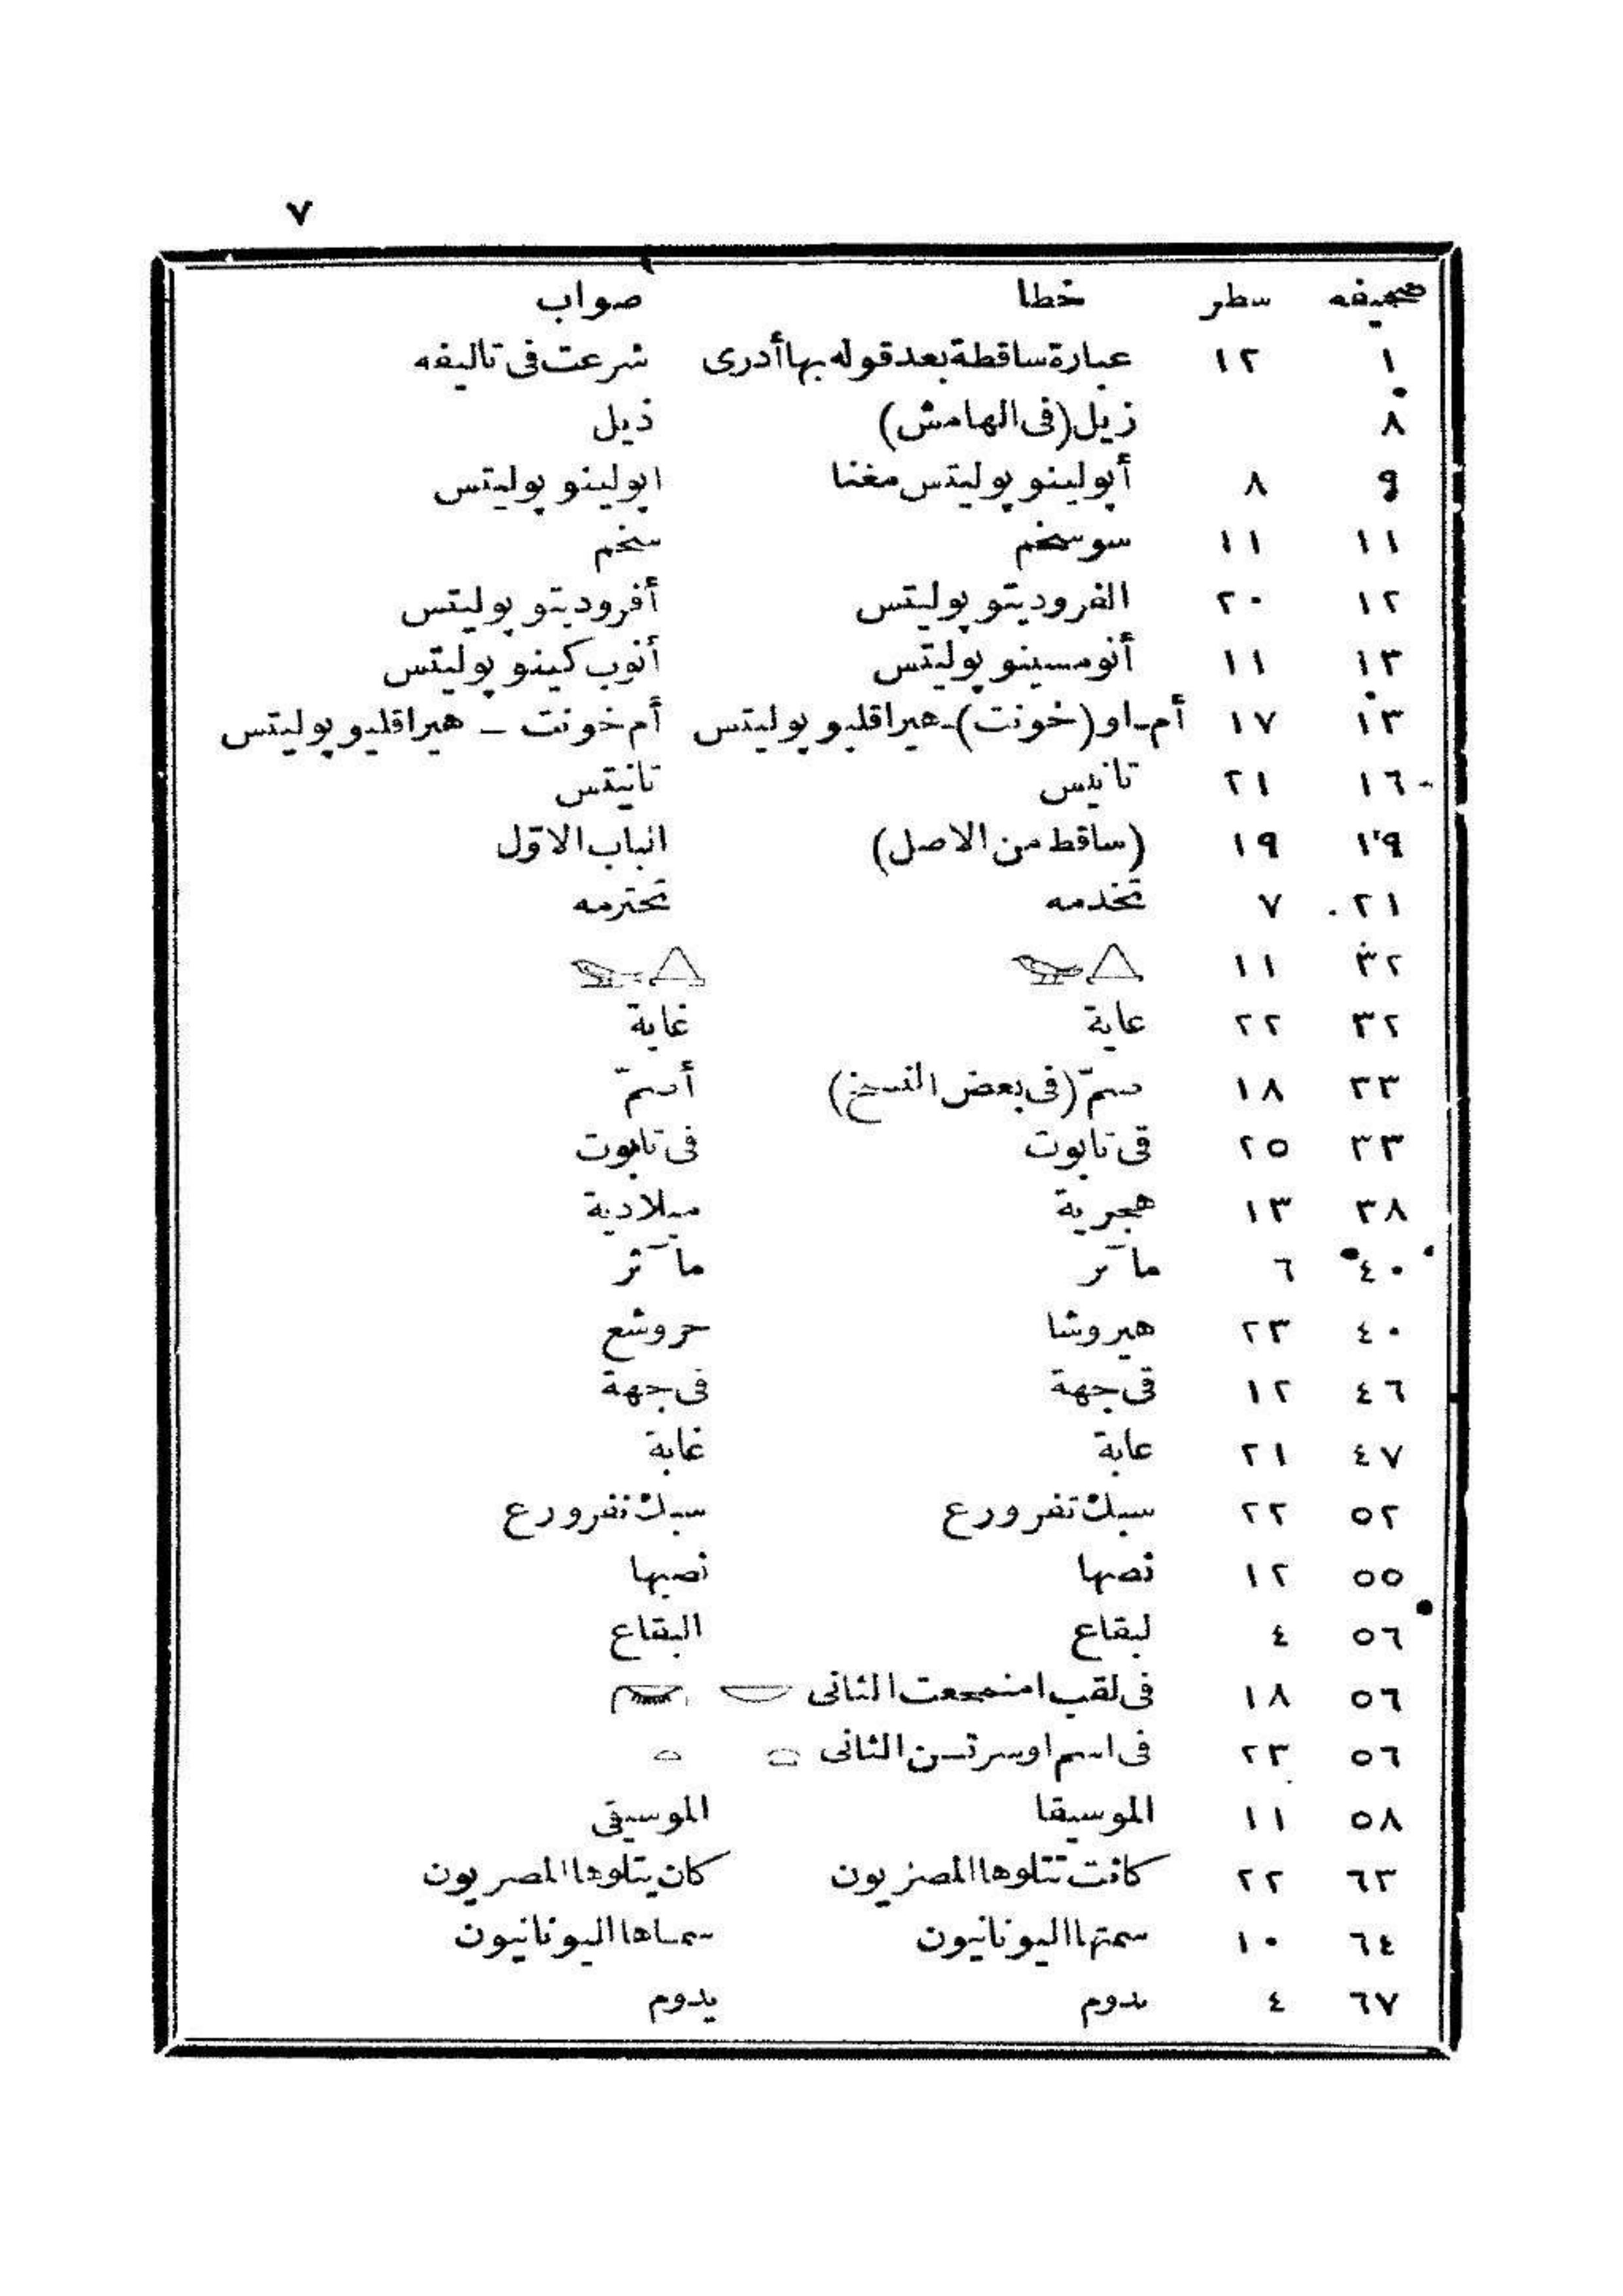 ٧
صحيفه سطر خطا صواب
١ ١٢ عبارة ساقطة بعد قوله بها أدرى شرعت فى تاليفه
٨ زيل (فى الهامش) ذيل
٩ ٨ أپولينو پوليتس مغنا اپولينو پوليتس
١١ ١١ سوسخم سخم
١٢ ٢٠ الفروديتو پوليتس أفروديتو پوليتس
١٣ ١١ أنومسينو پوليتس أنوب كينو پوليتس
١٣ ١٧ أم-او (خونت)-هيراقليو پوليتس أم خونت - هيراقليو پوليتس
١٦ ٢١ تانيس تانيتس
١٩ ١٩ (ساقط من الاصل) الباب الاوّل
٢١ ٧ تخدمه تحترمه
٣٢ ١١
٣٢ ٢٢ عاية غاية
٣٣ ١٨ صمّ (فى بعض النسخ) أصمّ
٣٣ ٢٥ قى تابوت فى تابوت
٣٨ ١٣ هجرية ميلادية
٤٠ ٦ مآتر مآثر
٤٠ ٢٣ هيروشا حروشع
٤٦ ١٢ قى جهة فى جهة
٤٧ ٢١ عابة غابة
٥٢ ٢٢ سبك تفرورع سبك نفرورع
٥٥ ١٢ نصها نصبها
٥٦ ٤ لبقاع البقاع
٥٦ ١٨ فى لقب امنمحعت الثانى
٥٦ ٢٣ فى اسم اوسرتسن الثانى
٥٨ ١١ الموسيقا الموسيقى
٦٣ ٢٢ كانت تتلوها المصريون كان يتلوها المصريون
٦٤ ١٠ سمتها اليونانيون سماها اليونانيون
٦٧ ٤ ىدوم يدوم